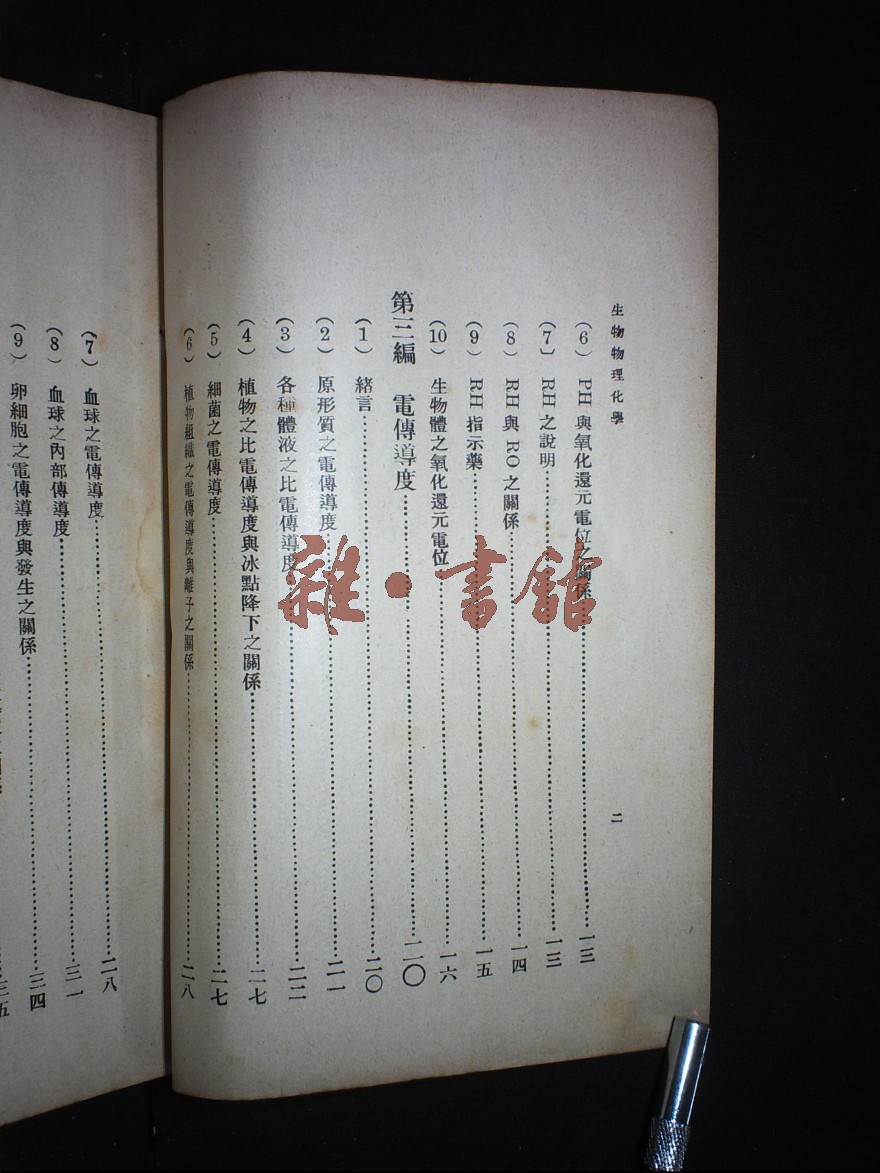 生物物理化學
二
(6) PH 與氧化還元電位之關係……一三
(7) RH 之說明……一三
(8) RH 與 RO 之關係……一四
(9) RH 指示藥……一五
(10) 生物體之氧化還元電位……一六
第三編 電傳導度……二〇
(1) 緒言……二〇
(2) 原形質之電傳導度……二一
(3) 各種體液之比電傳導度……二二
(4) 植物之比電傳導度與冰點降下之關係……二七
(5) 細菌之電傳導度……二七
(6) 植物組織之電傳導度與離子之關係……二八
(7) 血球之電傳導度……二八
(8) 血球之內部傳導度……三一
(9) 卵細胞之電傳導度與發生之關係……三四
三五
雜·書館